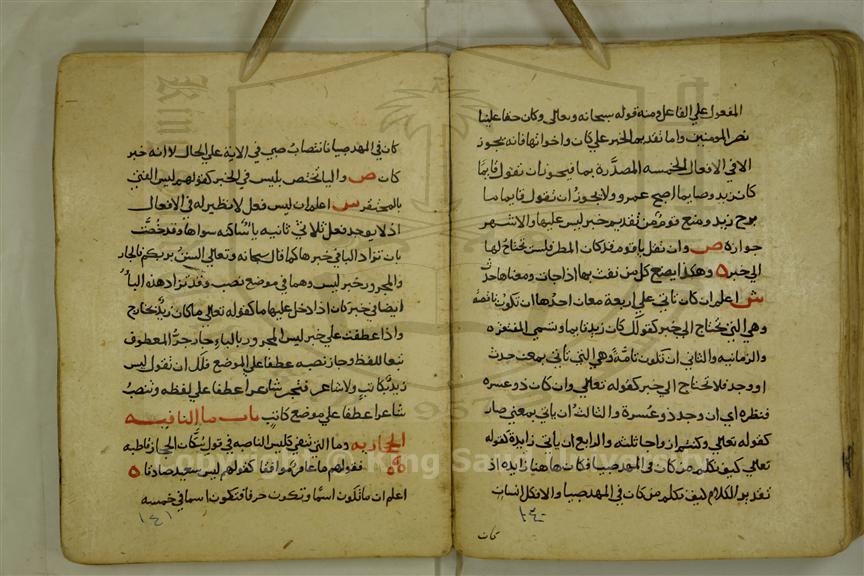 المفعول علي الفاعل ومنه قوله سبحانه وتعالي وكان حقا علينا
نصر المومنين واما تقديم الخبر علي كان واخواتها فانه يجوز
الا في الافعال الخمسه المصدرة بما فيجوز ان تقول قايما
كان زيد وصايما اصبح عمرو ولا يجوز ان تقول قايما ما
برح زيد ومنع قوم من تقديم خبر ليس عليها والاشهر
جوازه ص وان تقل يا قوم قد كان المطر فلست تحتاج لها
الي خبر ه وهكذا يصنع كل من نفث بها اذا جات ومعناها حدث
ش اعلم ان كان تاتي علي اربعة معان احدها ان تكون ناقصة
وهي التي تحتاج الي خبر كقولك كان زيد قايما وتسمي المفتقره
والزمانيه والثاني ان تكون تامة وهي التي تاتي بمعني حدث
او وجد فلا تحتاج الي خبر كقوله تعالي وان كان ذو عسره
فنظره اي ان وجد ذو عسرة والثالث ان ياتي بمعني صار
كقوله تعالي وكنتم ازواجا ثلثه والرابع ان ياتي زايدة كقوله
تعالي كيف نكلم من كان في المهد صبيا فكان هاهنا زايده اذ
تقدير الكلام كيف نكلم من كان في المهد صبيا والا فكل انسان
كان
١٤٠
كان في المهد صبيا فانتصاب صبي في الاية علي الحال لا انه خبر
كان ص والبا تختص بليس في الخبر كقولهم ليس الفتي
بالمحتقر س اعلم ان ليس فعل لا نظير له في الافعال
اذ لا يوجد فعل ثلاثي ثانيه يا ساكنه سواها وقد خصت
بان تزاد البا في خبرها كما قال سبحانه وتعالي الست بربكم فالجار
والمجرور خبر ليس وهما في موضع نصب وقد تزاد هذه البا
ايضا في خبر كان اذا دخل عليها ما كقوله تعالي ما كان زيد بخارج
واذا عطفت علي خبر ليس المجرور بالباء جاز جر المعطوف
تبعا للفظ وجاز نصبه عطفا علي الموضع فلك ان تقول ليس
زيد بكاتب ولا شاعر فتجر شاعرا عطفا علي لفظه وتنصب
شاعرا عطفا علي موضع كاتب باب ما النافيه
الحجازيه وما التي تنفي كليس الناصبه في قول سكان الحجاز قاطبه
فقولهم ما عامر موافقا كقولهم ليس سعيد صادقا ه
اعلم ان ما تكون اسما وتكون حرفا فتكون اسما في خمسه
١٤١